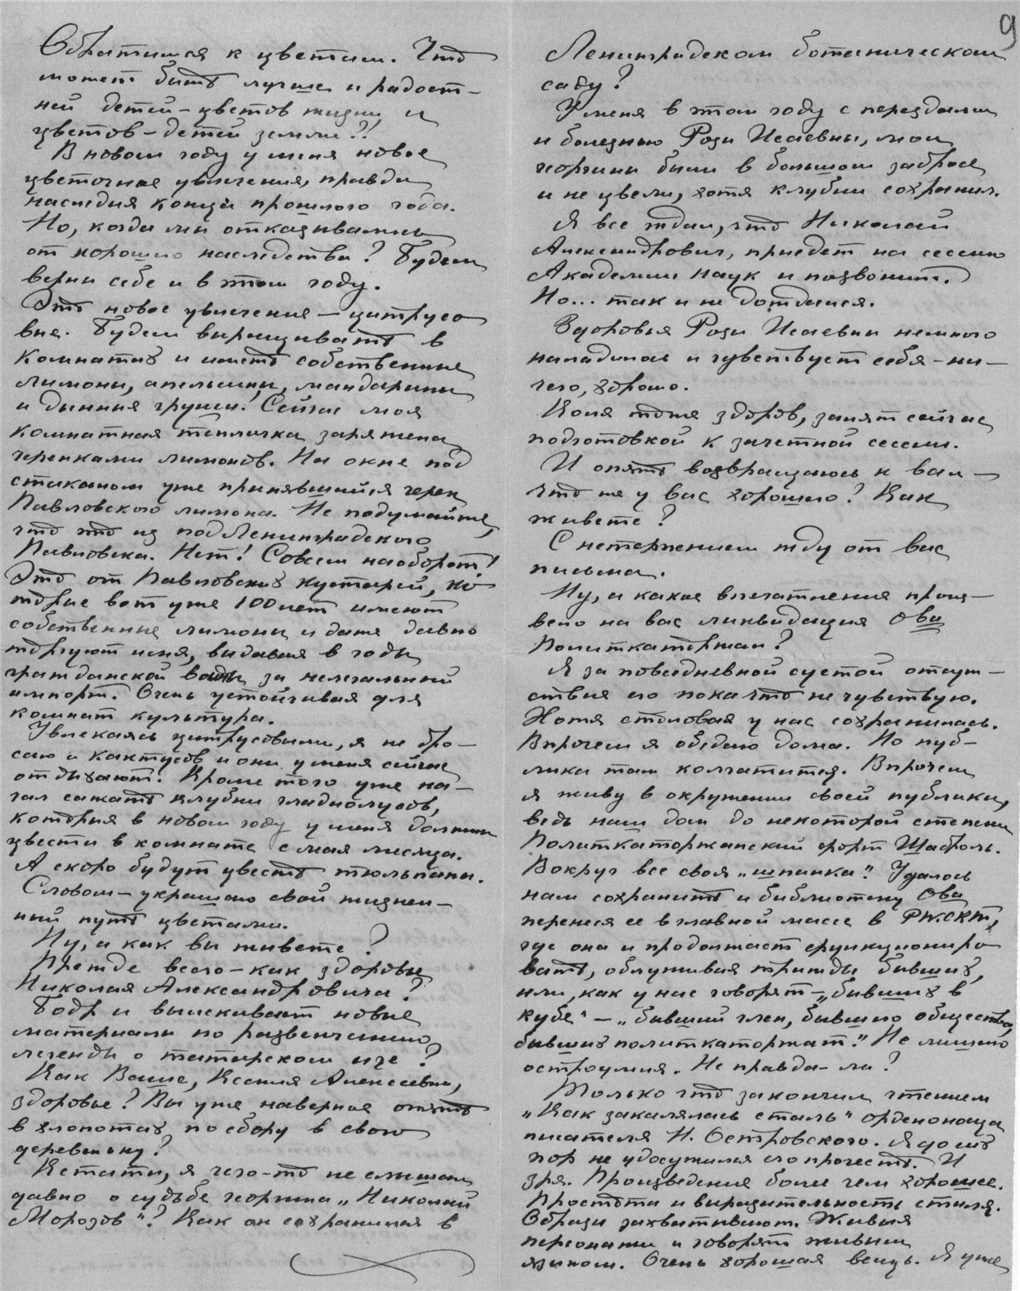 Обратимся к цветам. Что
может быть лучше и радост-
ней детей-цветов жизни и
цветов-детей земли?!
В новом году у меня новое
цветочное увлечение, правда
наследия конца прошлого года.
Но, когда мы отказывались
от хорошего наследства? Будем
верны себе и в этом году.
Это новое увлечение — цитрусо
вые. Будем выращивать в
комнатах и иметь собственные
лимоны, апельсины, мандарины
и дынные груши! Сейчас моя
комнатная тепличка заряжена
черенками лимонов. На окне под
стаканом уже принявшийся черен
Павловского лимона. Не подумайте,
что это из под Ленинградского
Павловска. Нет! Совсем наоборот!
Это от Павловских кустарей, ко-
торые вот уже 100 лет имеют
собственные лимоны и даже давно
торгуют ими, выдавая в годы
гражданской войны за нелегальный
импорт. Очень устойчивая для
комнат культура.
Увлекаясь цитрусовыми, я не бро-
саю и кактусов и они у меня сейчас
отдыхают. Кроме того уже на-
чал сажать клубни гладиолусов,
которые в новом году у меня должны
цвести в комнате с мая месяца.
А скоро будут цвести тюльпаны.
Словом — украшаю свой жизнен-
ный путь цветами.
Ну, а как вы живете?
Прежде всего — как здоровье
Николая Александровича?
Бодр и выискивает новые
материалы по развенчанию
легенды о татарском иге?
Как Ваше, Ксения Алексеевна,
здоровье? Вы уже наверное опять
в хлопотах по сбору в свою
деревеньку?
Кстати, я чего-то не слышал
давно о судьбе георгина „Николай
Морозов"? Как он сохранился в
9
Ленинградском ботаническом
саду?
У меня в этом году с переездами
и болезнью Розы Исаевны, мои
георгины были в большом забросе
и не цвели, хотя клубни сохранил.
Я все ждал, что Николай
Александрович, приедет на сессию
Академии Наук и позвонит.
Но... так и не дождался.
Здоровье Розы Исаевны немного
наладилось и чувствует себя — ни-
чего, хорошо.
Коля тоже здоров, занят сейчас
подготовкой к зачетной сессии.
И опять возвращаюсь к вам —
что же у вас хорошего? Как
живете?
С нетерпением жду от вас
письма.
Ну, а какое впечатление произ-
вело на вас ликвидация О-ва
Политкаторжан?
Я за повседневной суетой отсут-
ствия его пока что не чувствую.
Хотя столовая у нас сохранилась.
Впрочем я обедаю дома. Но пуб-
лика там колготится. Впрочем
я живу в окружении своей публики,
ведь наш дом до некоторой степени
Политкаторжанский форт Шаброль.
Вокруг все своя „шпанка". Удалось
нам сохранить и библиотеку О-ва
перенеся ее в главной массе в РЖСКТ,
где она и продолжает функциониро
вать, обслуживая трижды бывших,
или, как у нас говорят — „бывших в
кубе" — „бывший член, бывшего общества
бывших политкаторжан." Не лишено
остроумия. Не правда-ли?
Только что закончил чтением
„Как закалялась сталь" орденоносца
писателя Н. Островского. Я до сих
пор не удосужился его прочесть. И
зря. Произведение более чем хорошее.
Простота и выразительность стиля.
Образы захватывают. Живые
персонажи и говорят живым
языком. Очень хорошая вещь. Я уже